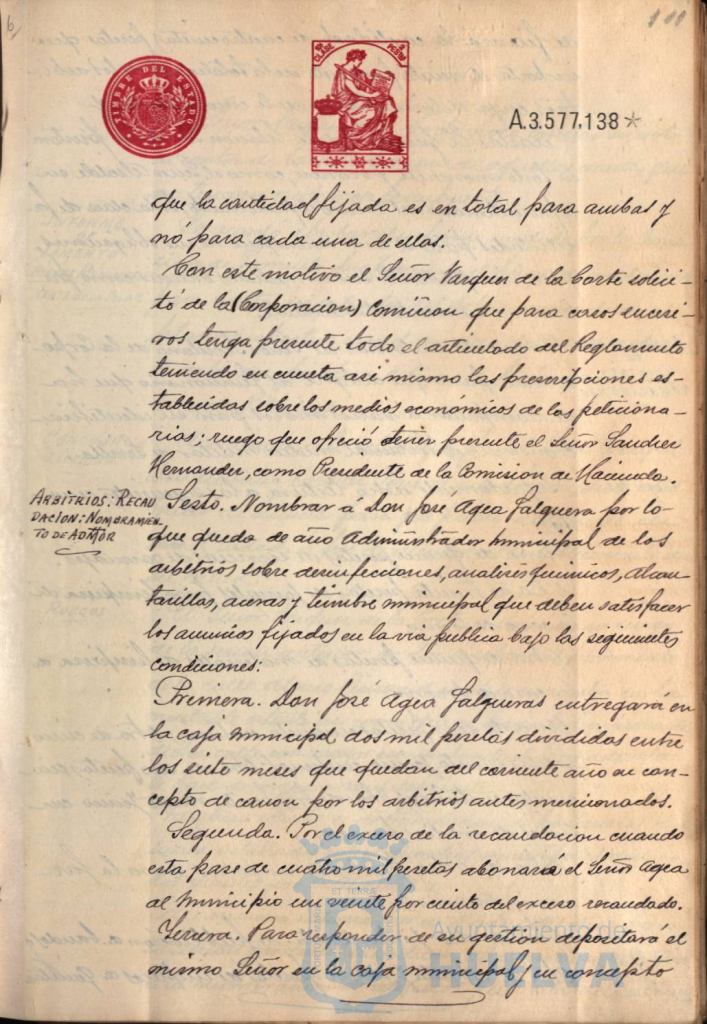 6
111
TIMBRE DEL ESTADO
CLASE
A.3.577,138*
que la cantidad fijada es en total para ambas y
nó para cada una de ellas.
Con este motivo el Señor Vazquez de la Corte solici-
tó de la (Corporacion) Comision que para casos sucesi-
vos tenga presente todo el articulado del Reglamento
teniendo en cuenta asi mismo las prescripciones es-
tablecidas sobre los medios económicos de las peticiona-
rias; ruego que ofreció tener presente el Señor Sanchez
Hernandez, como Presidente de la Comision de Hacienda.
ARBITRIOS: RECAU
DACION: NOMBRAMIEN-
TO DE ADMOR
Sesto. Nombrar á Don José Agea Falguera por lo
que queda de año Administrador municipal de los
arbitrios sobre desinfecciones, analisis quimicos, alcan-
tarillas, aceras y timbre municipal que deben satisfacer
los anuncios fijados en la via publica bajo las siguientes
condiciones:
Primera. Don José Agea Falgueras entregará en
la caja municipal dos mil pesetas divididas entre
los siete meses que quedan del corriente año en con-
cepto de canon por los arbitrios antes mencionados.
Segunda. Por el exceso de la recaudacion cuando
esta pase de cuatro mil pesetas abonará el Señor Agea
al Municipio un veinte por ciento del exceso recaudado.
Tercera. Para responder de su gestion depositará el
mismo Señor en la caja municipal y en concepto
Ayuntamiento de
HUELVA